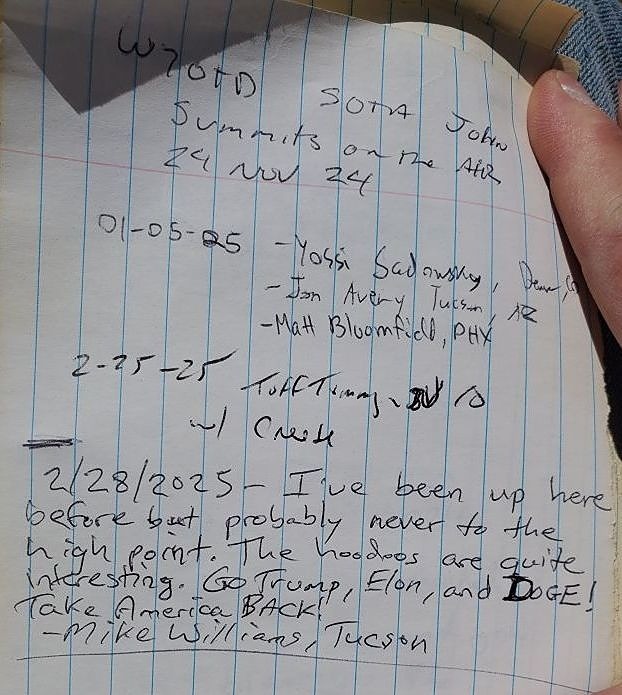 W7OTD SOTA John
Summits on the AIR
24 NOV 24
01-05-25 - Yossi Sadowsky, Denver, CO
- Jon Avery Tucson, AZ
- Matt Bloomfield, PHX
2-25-25 Tuff Timmy
w/
2/28/2025 - I've been up here
before but probably never to the
high point. The hoodoos are quite
interesting. Go Trump, Elon, and DOGE!
Take America BACK!
- Mike Williams, Tucson